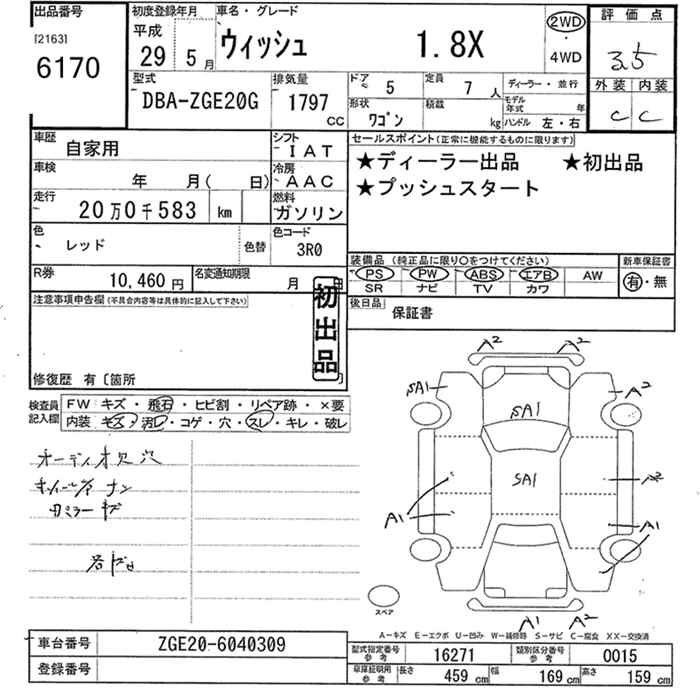 出品番号 初度登録年月 車名・グレード 2WD 評価点
[2163] 平成 ウィッシュ 1.8X 3.5
6170 29 5月 4WD 外装 内装
C C
型式 排気量 ドア 5 定員 7人 ディーラー・並行
DBA-ZGE20G 1797 CC 形状 ワゴン 積載 kg モデル年式 年
ハンドル 左・右
車歴 自家用 シフト IAT セールスポイント(正常に機能するものに限ります)
車検 年 月( 日) 冷房 AAC ★ディーラー出品 ★初出品
走行 20万0千583 km 燃料 ガソリン ★プッシュスタート
色 レッド 色替 色コード 3R0
装備品(純正品に限り○をつけてください) 新車保証書
R券 10,460円 名変通知期限 月 日 PS PW ABS エアB AW 有・無
SR ナビ TV カワ
注意事項申告欄(不具合内容等は具体的に記入して下さい) 初出品 後日品 保証書
修復歴 有〔箇所 〕
検査員記入欄 FW キズ・飛石・ヒビ割・リペア跡・×要
内装 キズ・汚レ・コゲ・穴・スレ・キレ・破レ
A2 A2
SA1 A2
SA1
オーディオ欠 穴
SA1 A2
A1 A1
スペア
A1 A2
A-キズ E-エクボ U-凹み W-補修跡 S-サビ C-腐食 XX-交換済
車台番号 ZGE20-6040309
型式指定番号 参考 16271 類別区分番号 参考 0015
登録番号
車庫証明用 参考 長さ 459 cm 幅 169 cm 高さ 159 cm